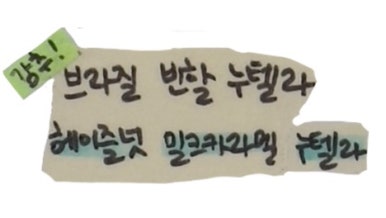 강추!
브라질 반할 누텔라
헤이즐넛 밀크카라멜 누텔라